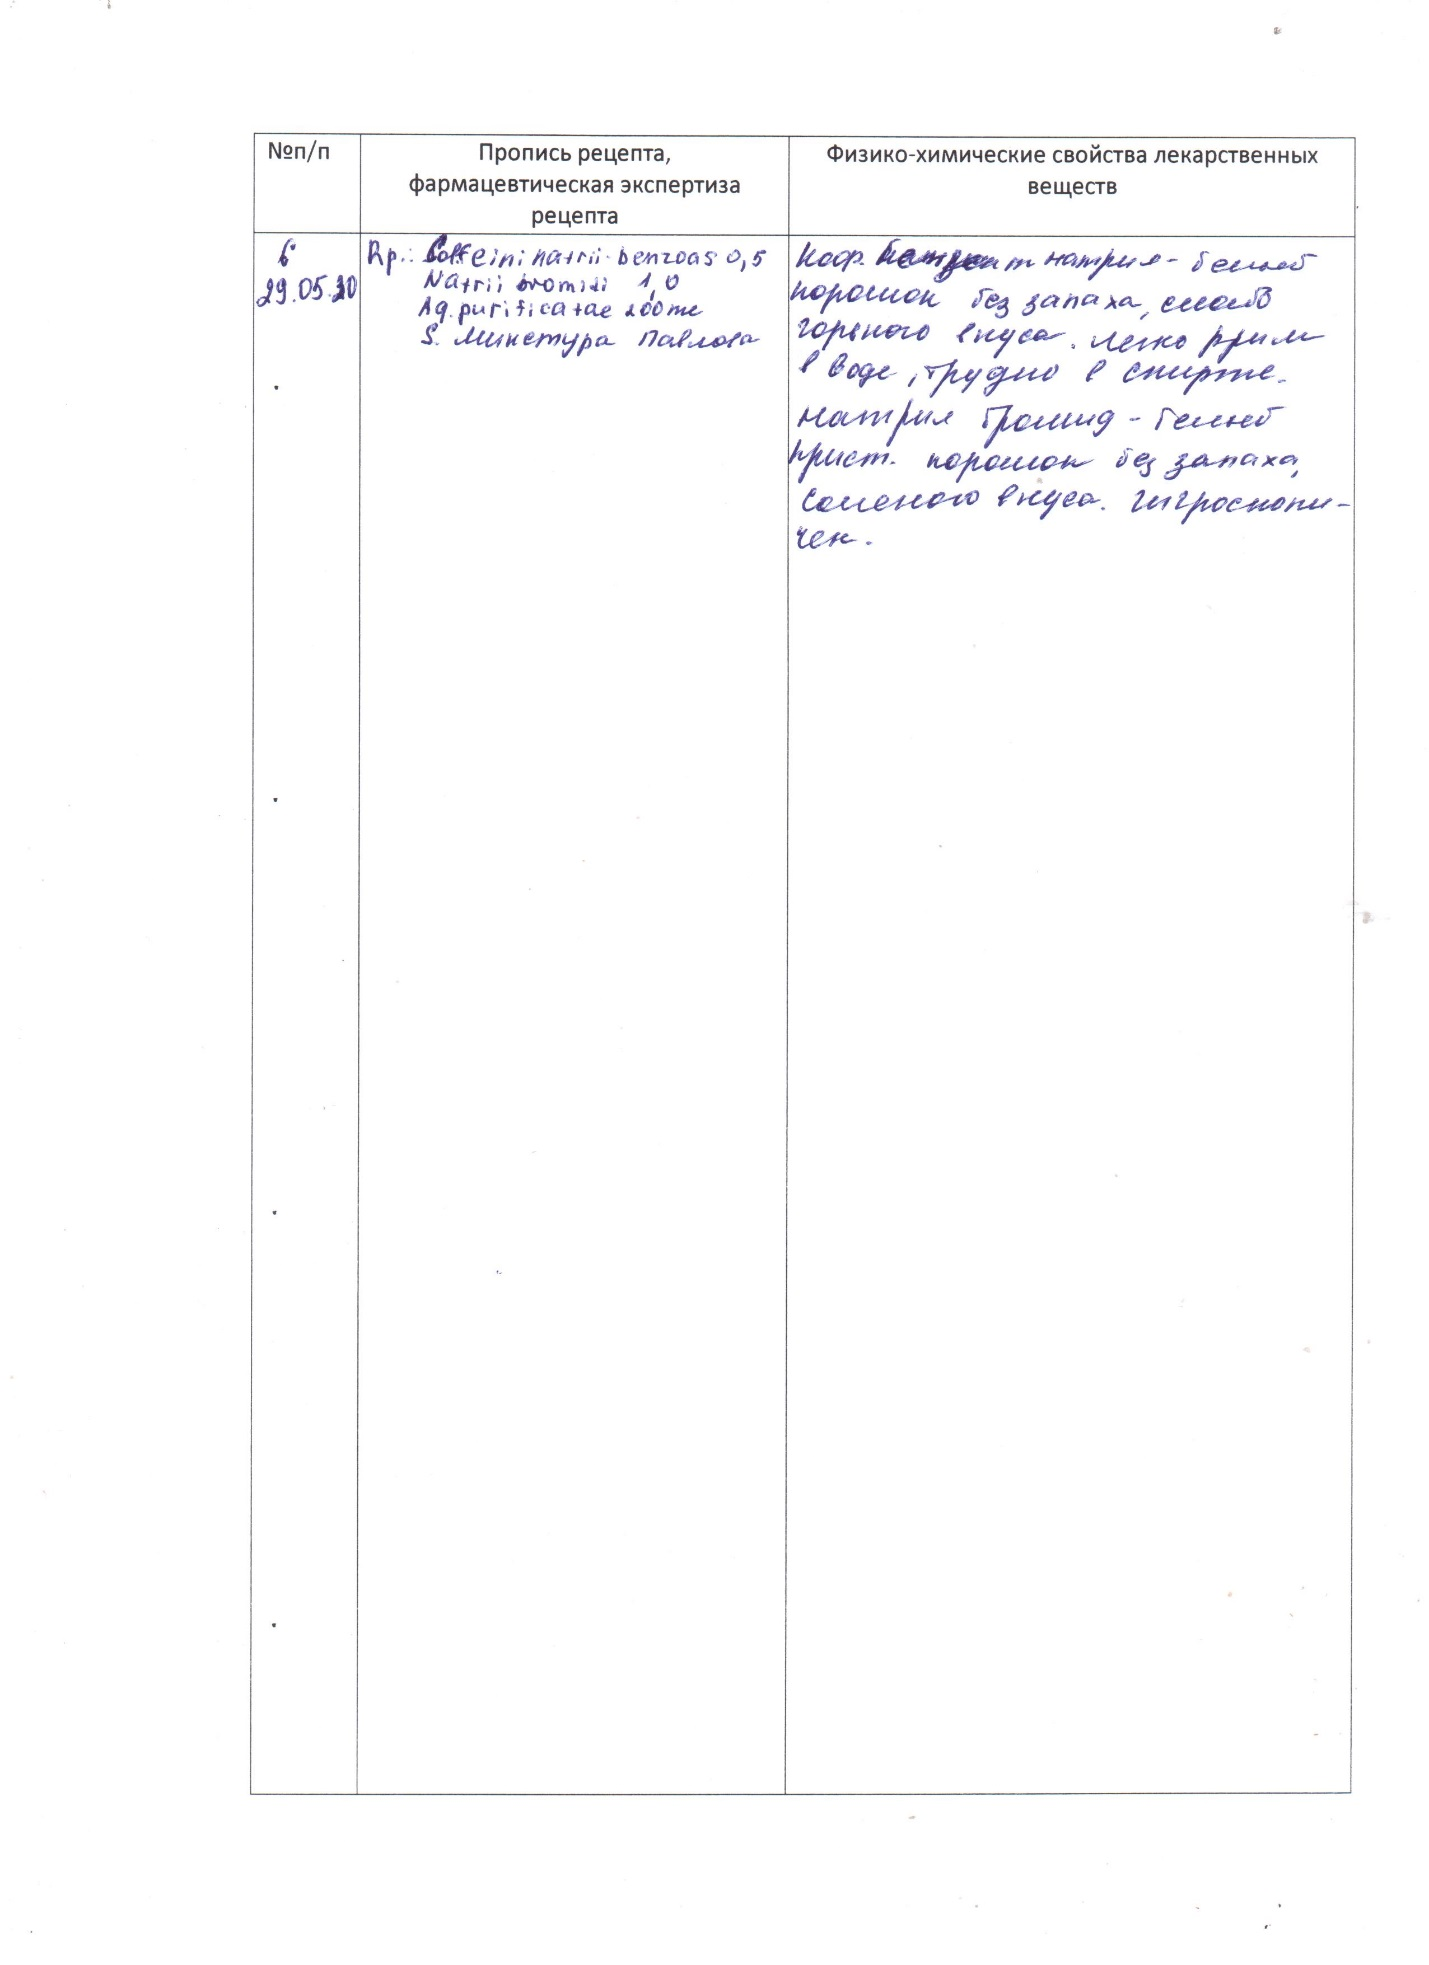 №п/п
Пропись рецепта,
фармацевтическая экспертиза
рецепта
Физико-химические свойства лекарственных
веществ
6
29.05.20
Rp.: Coffeini natrii-benzoas 0,5
Natrii bromidi 1,0
Aq. purificatae 200ml
S. Микстура Павлова
Коф. натрия - белый
порошок без запаха, слабо
горького вкуса. Легко
в воде, трудно в спирте.
Натрия бромид - белый
крист. порошок без запаха,
соленого вкуса. Гигроскопи-
чен.